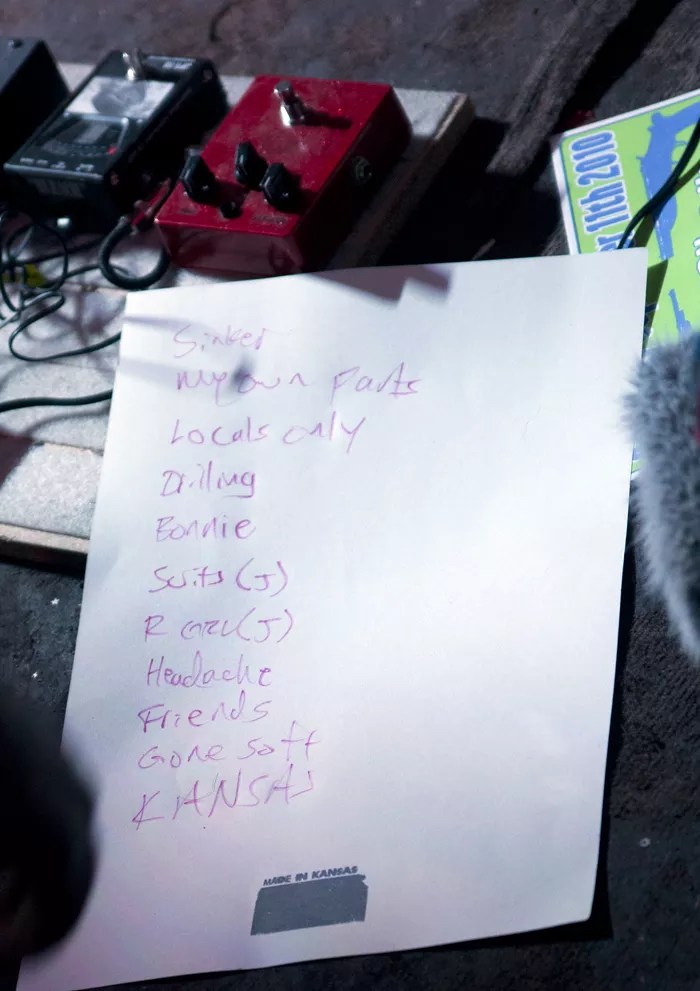 r 11th 2010
Sinker
my own parts
Locals only
Drilling
Bonnie
Suits (J)
R (J)
Headache
Friends
Gone soft
KANSAS
MADE IN KANSAS